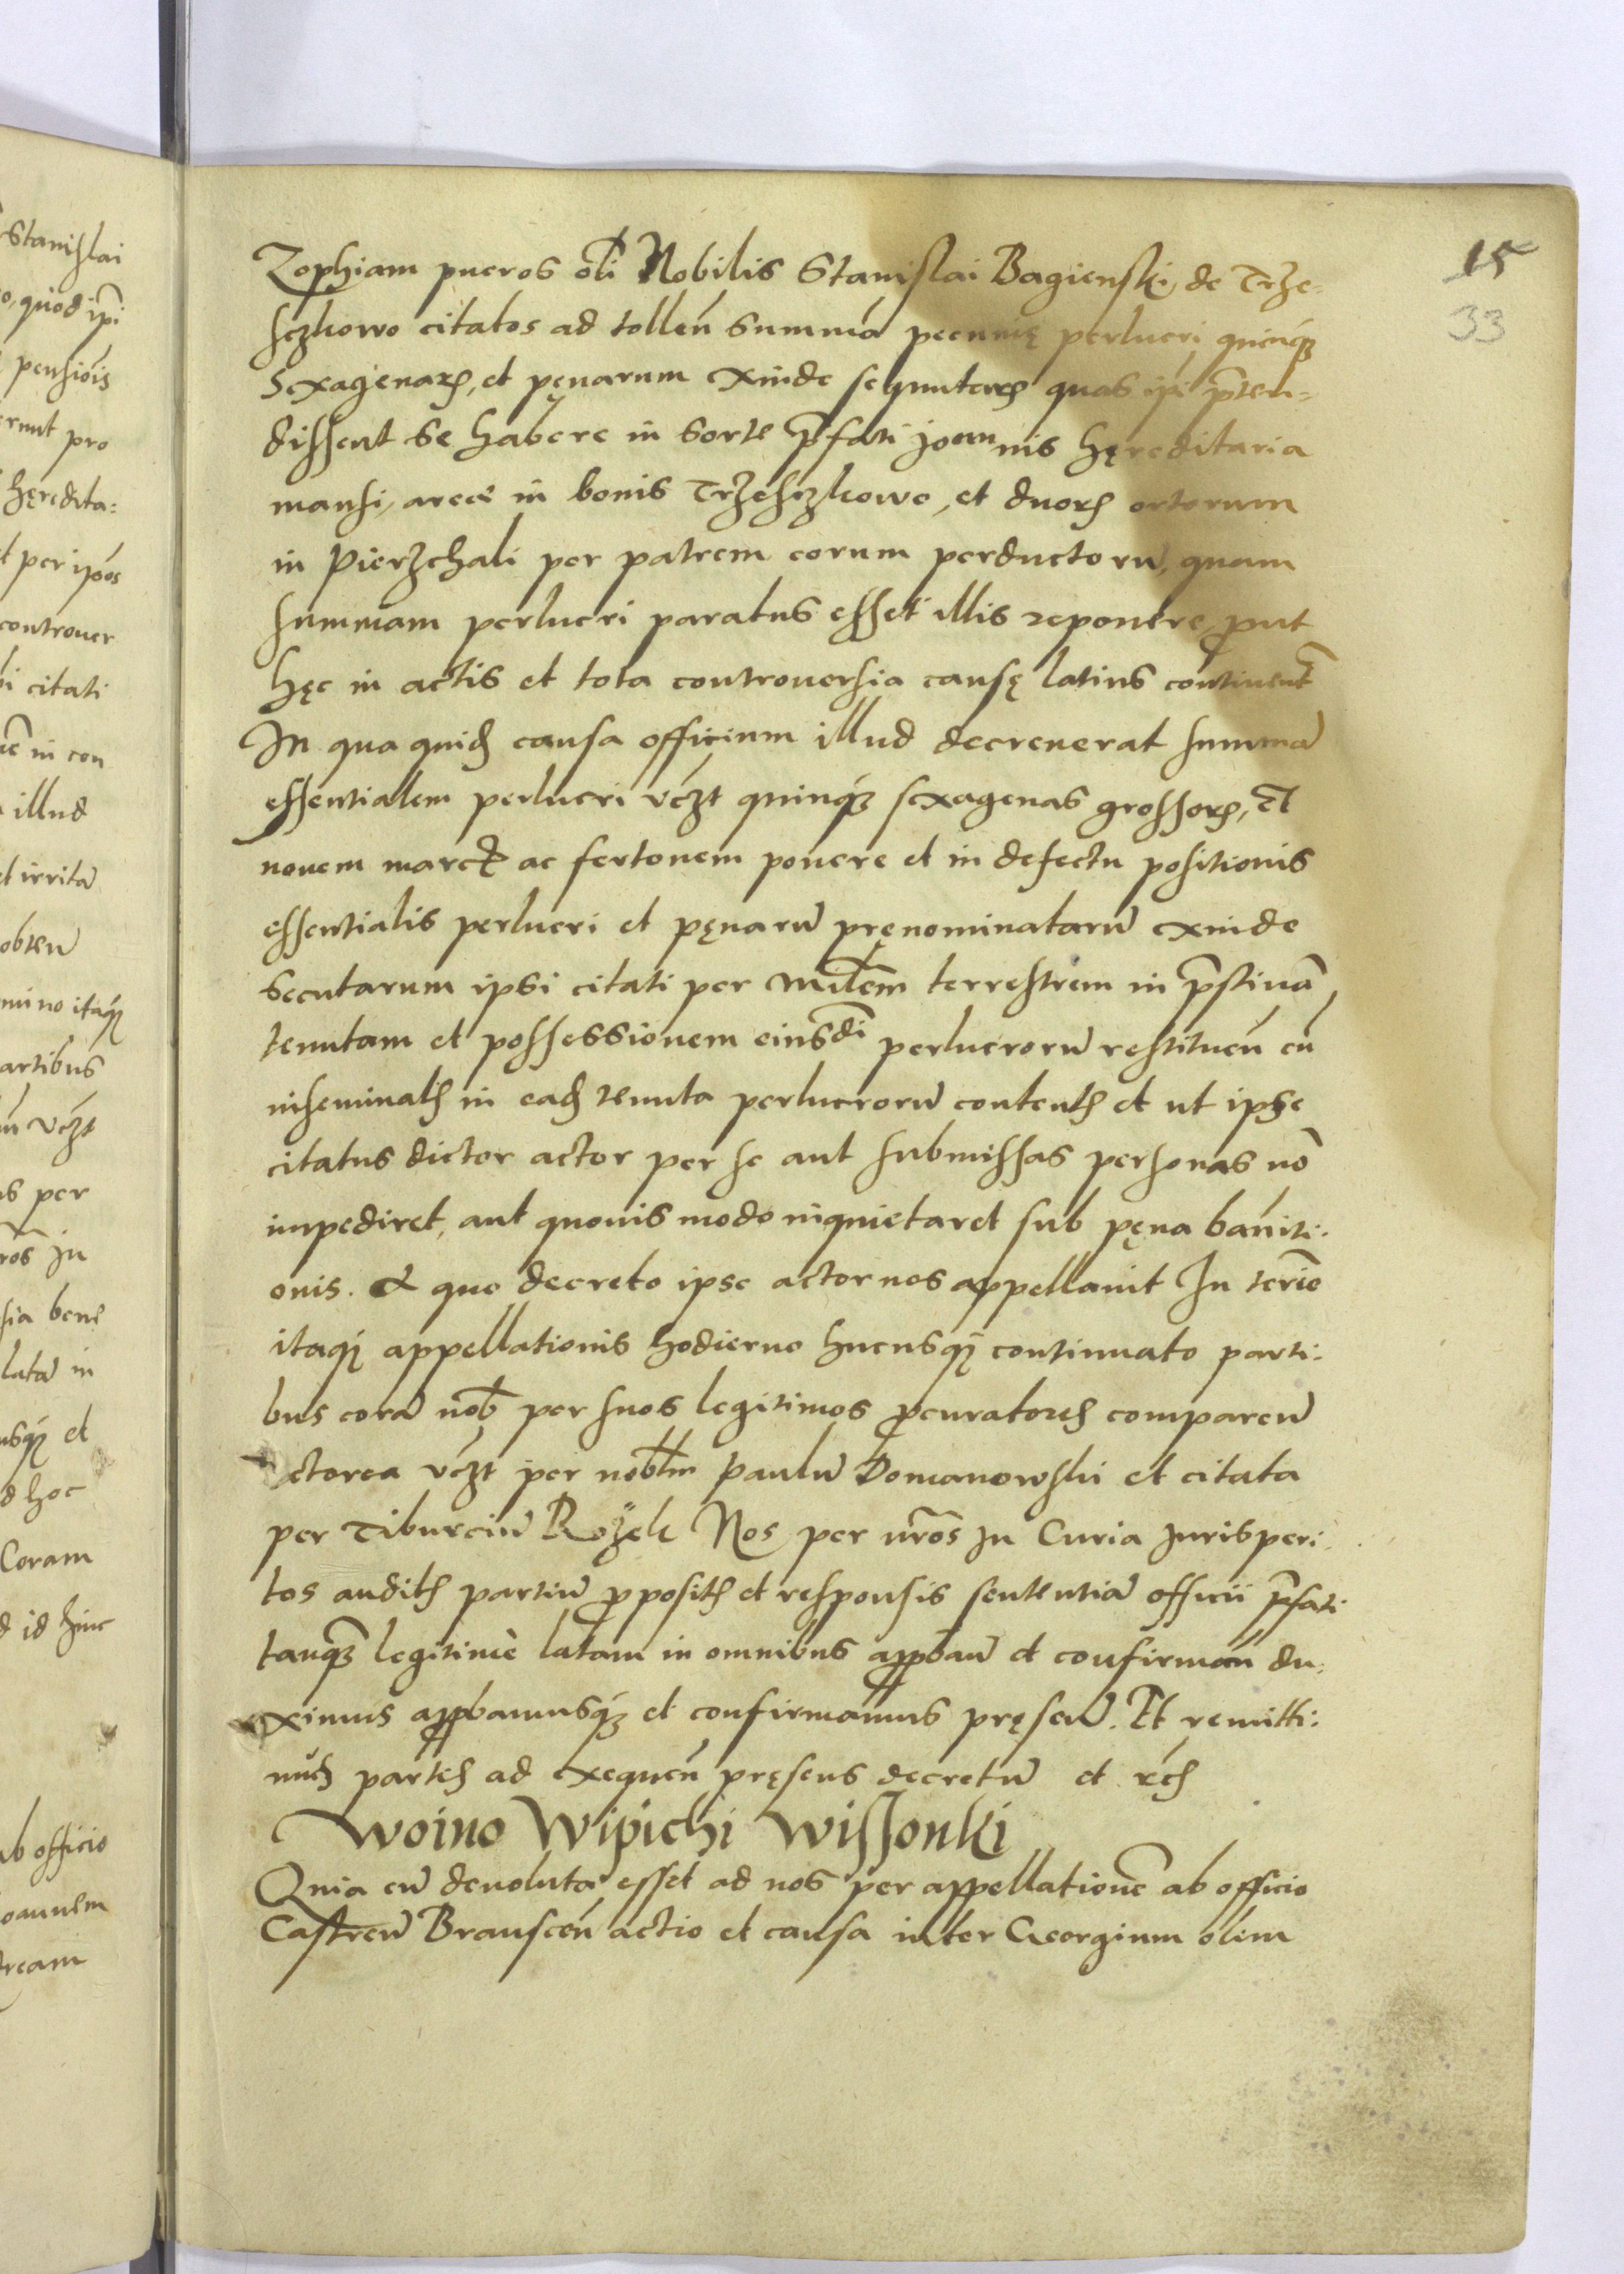 15
33
Zophiam pueros oli Nobilis Stanislai Bagienski de Trze-
sczkowo citatos ad tollen̄ summā pecunię perlucri quinq̨
sexagenarꝝ, et pęnarum exinde sequutarꝝ quas ip̄i p̄ten-
dissent se habere in sorte p̄fati joannis hęreditaria
mansi, areę in bonis Trzesczkowo, et duorꝝ ortorum
in Pierzchali per patrem eorum perductorū, quam
summam perlucri paratus esset illis reponere, ꝓut
hęc in actis et tota controuersia causę latius continent̄
In qua quidē causa officium illud decreuerat summā
essentialem perlucri vczt quinq̨ sexagenas grossorꝝ, Et
nouem marcas ac fertonem ponere et in defectu positionis
essentialis perlucri et pęnarū pręnominatarū exinde
secutarum ipsi citati per mil̄em terrestrem in p̄stinā
tenutam et possessionem eiusdi perlucrorū restituen̄ cū
inseminatis in eadē tenuta perlucrorū contentis et ut ipse
citatus dictor actor per se aut submissas personas nō
impediret, aut quouis modo inquietaret sub pęna bāniti:
onis. A quo decreto ipse actor nos appellauit In termīo
itaq̨ appellationis hodierno hucusq̨ continuato parti:
bus corā nob̄ per suos legitimos ꝓcuratores comparen̄
actorea vczt per nobl̄em Paulū Domanowski et citata
per Tiburciū Rożek Nos per nr̄os In Curia Jurisperi:
tos auditis partiū ꝓpositis et responsis sententiā officii p̄fati
tanq̨ legitime latam in omnibus apꝓban̄ et confirman̄ du:
ximus apꝓbamusq̨ et confirmamus pręsen̄. Et remitti:
mus partes ad exequen̄ pręsens decretū et rēs
Woino Wipichi Wissonki
Quia cū deuoluta esset ad nos per appellationē ab officio
Castren̄ Branscen̄ actio et causa inter Georgium olim